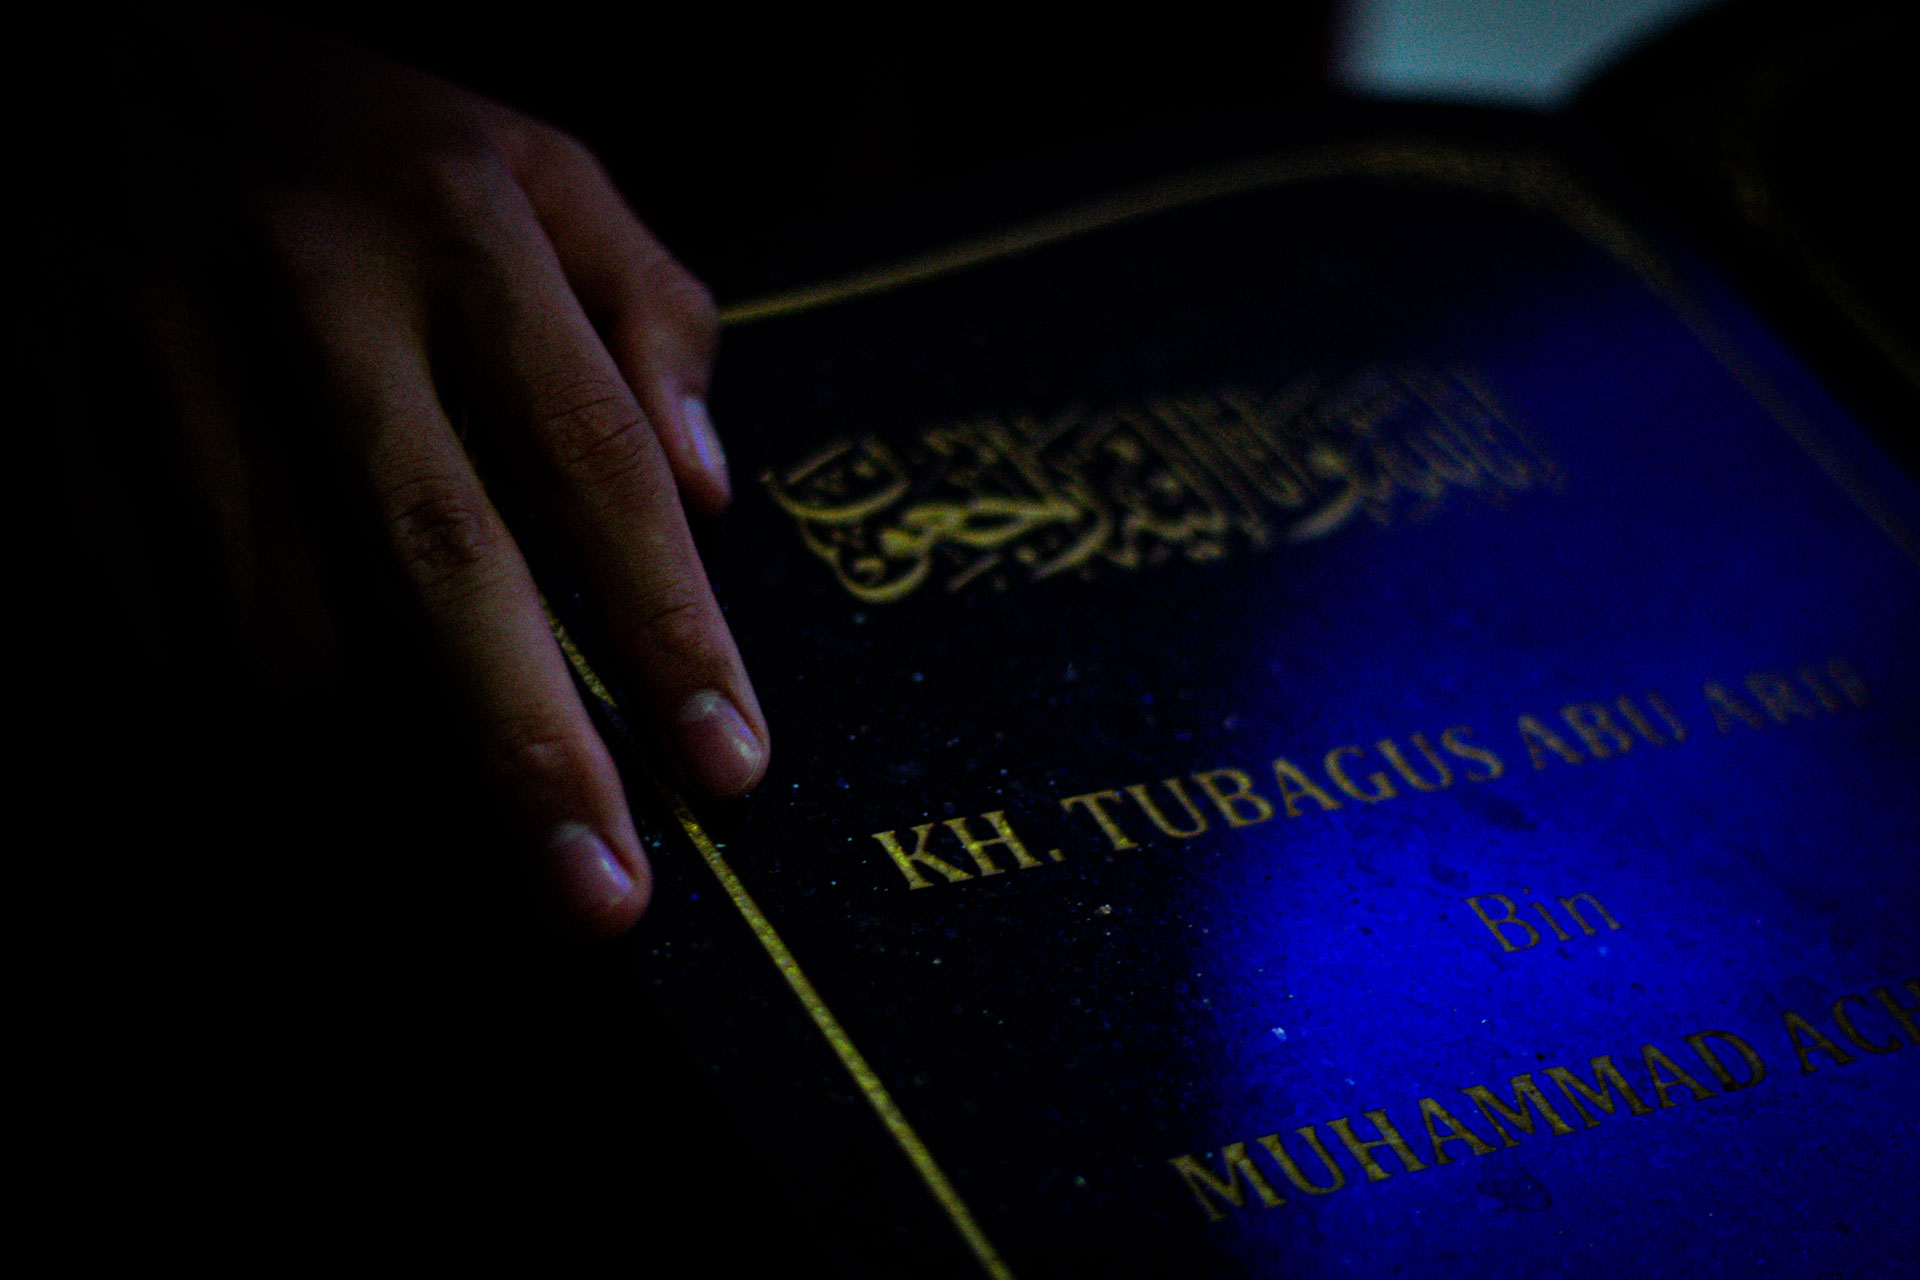 إنا لله وإنا إليه راجعون
KH. TUBAGUS ABU ARIF
Bin
MUHAMMAD ACH